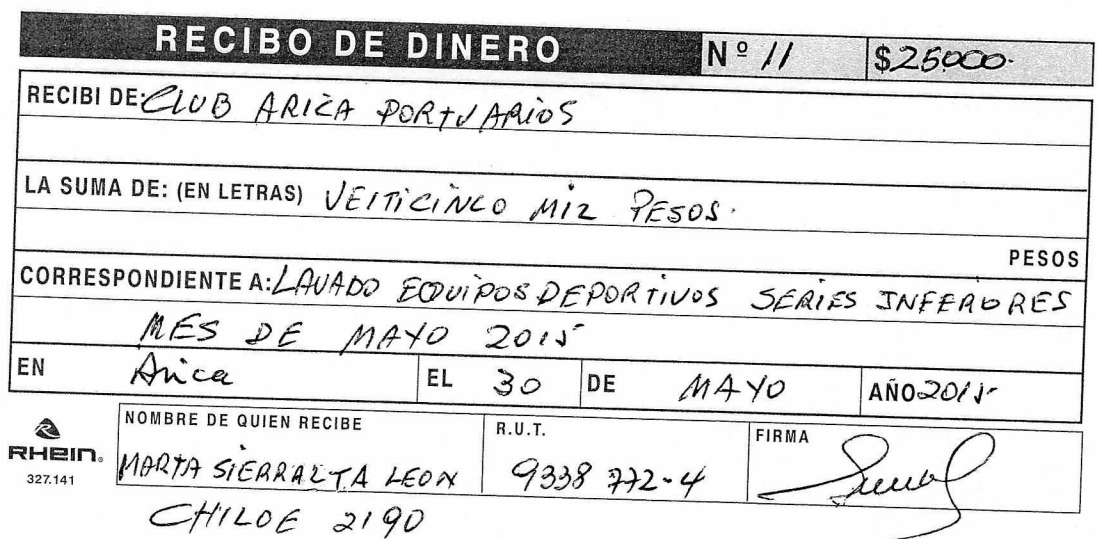 RECIBO DE DINERO Nº 11 $25000.
RECIBI DE: CLUB ARICA PORTUARIOS
LA SUMA DE: (EN LETRAS) VEITICINCO MIL PESOS.
PESOS
CORRESPONDIENTE A: LAVADO EQUIPOS DEPORTIVOS SERIES INFERIORES
MES DE MAYO 2015
EN Arica EL 30 DE MAYO AÑO 2015
NOMBRE DE QUIEN RECIBE R.U.T. FIRMA
RHEIN® MARTA SIERRALTA LEON 9338772-4
327.141
CHILOE 2190